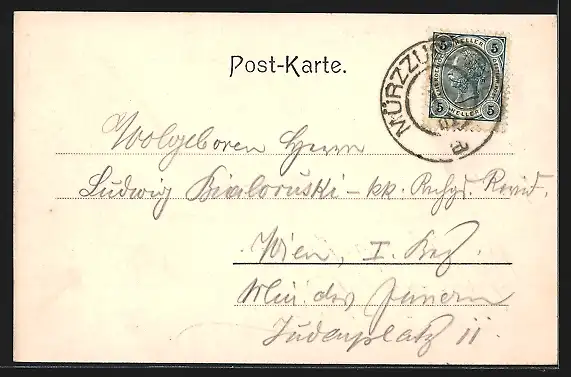 Post-Karte.
MÜRZZU
5 HELLER 5
5 HELLER 5
Wolgeboren Herrn
Ludwig Bialoruski - kk. Rchgs. Revid.
Wien, I. Bez.
Min. des Innern
Judenplatz 11.